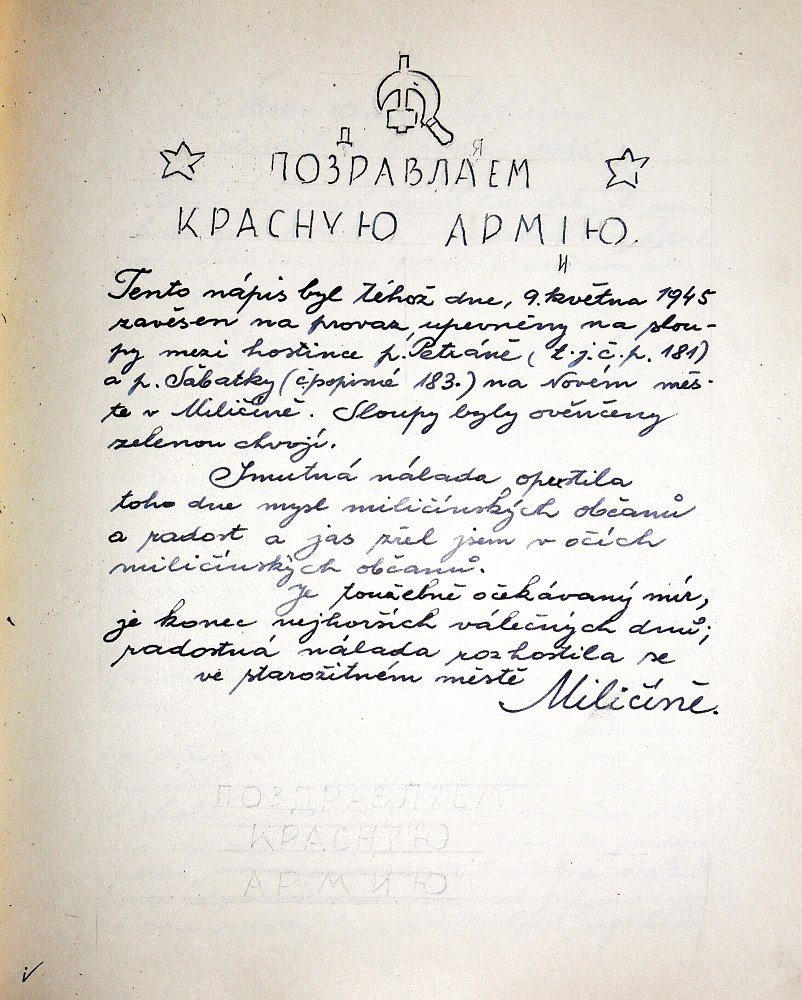 Д Я
ПОЗРАВЛАЕМ
КРАСНУЮ АРМІЮ.
И
Tento nápis byl téhož dne, 9. května 1945
zavěšen na provaz, upevněný na slou-
py mezi hostince p. Petráně (t.j.č.p. 181)
a p. Sabatky (čpopisné 183.) na Novém měs-
tě v Miličíně. Sloupy byly ověnčeny
zelenou chvojí.
Smutná nálada opustila
toho dne mysl miličínských občanů
a radost a jas zřel jsem v očích
miličínských občanů.
Je toužebně očekávaný mír,
je konec nejhorších válečných dnů;
radostná nálada rozhostila se
ve starožitném městě
Miličíně.
ПОЗДРАВЛЯЕМ
КРАСНУЮ
АРМИЮ